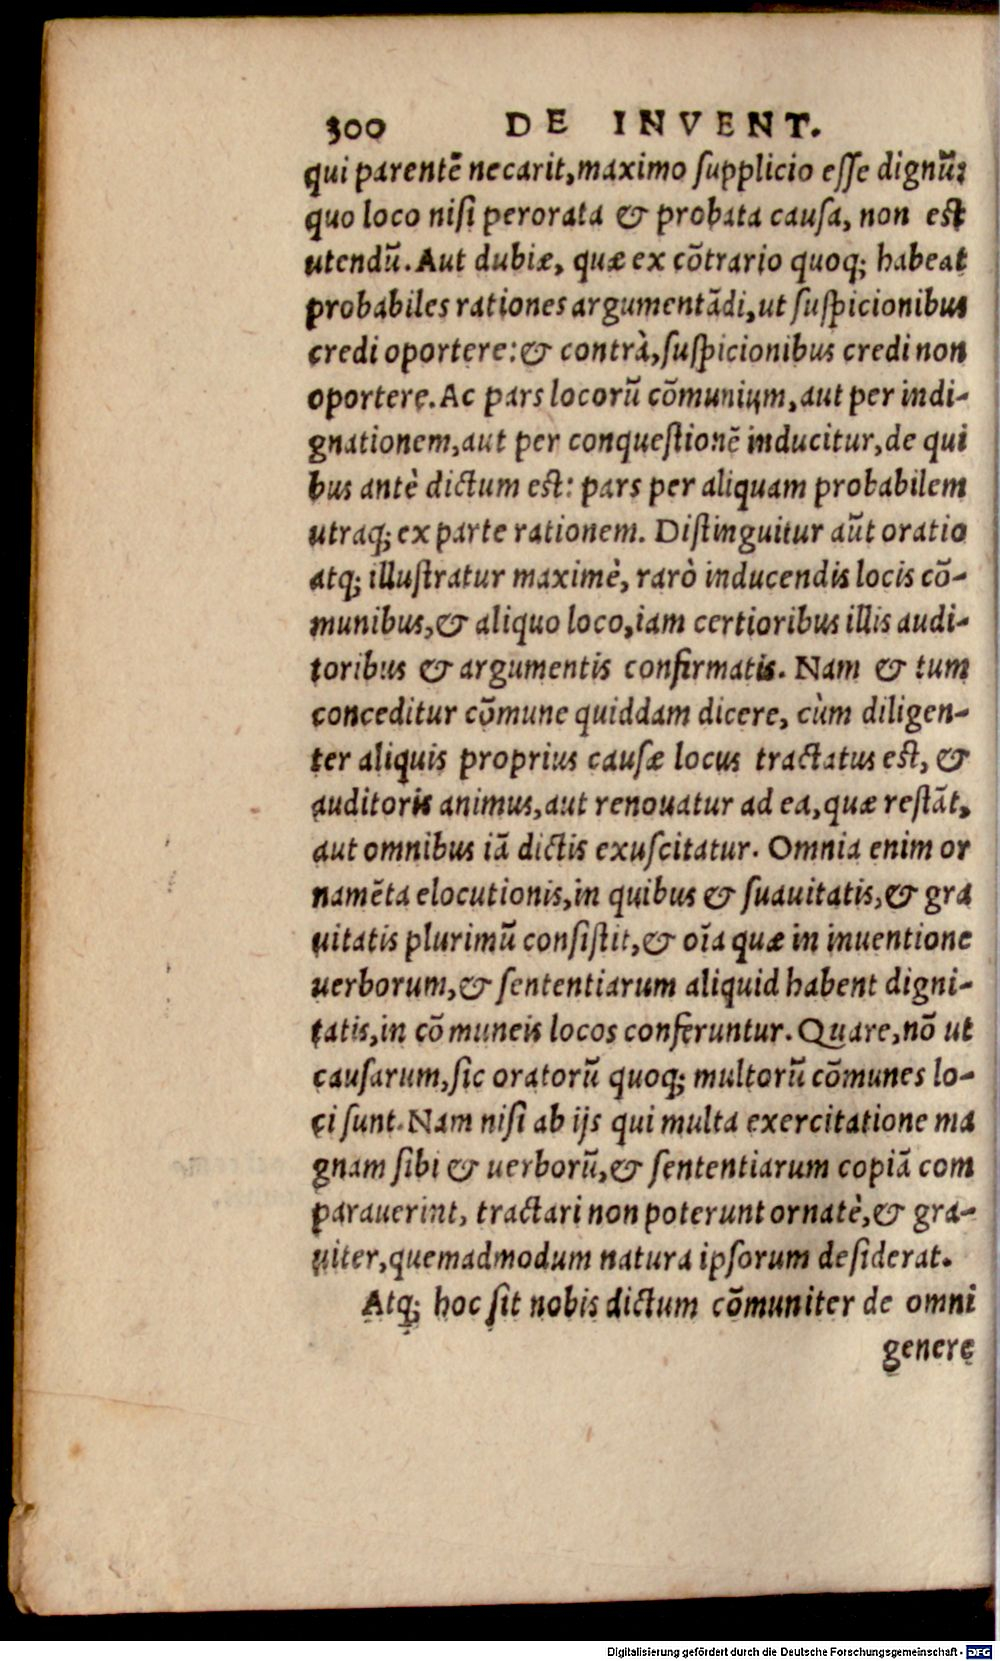 300 DE INVENT.
qui parentē necarit, maximo ſupplicio eſſe dignũ:
quo loco niſi perorata & probata cauſa, non est
utendũ. Aut dubiæ, quæ ex cõtrario quoq; habeat
probabiles rationes argumentãdi, ut ſuſpicionibus
credi oportere: & contrà, ſuſpicionibus credi non
oportere. Ac pars locorũ cõmunium, aut per indi-
gnationem, aut per conqueſtionē inducitur, de qui
bus antè dictum est: pars per aliquam probabilem
utraq; ex parte rationem. Diſtinguitur aũt oratio
atq; illuſtratur maximè, rarò inducendis locis cõ-
munibus, & aliquo loco, iam certioribus illis audi-
toribus & argumentis confirmatis. Nam & tum
conceditur cõmune quiddam dicere, cùm diligen-
ter aliquis proprius cauſæ locus tractatus est, &
auditoris animus, aut renouatur ad ea, quæ reſtãt,
aut omnibus iã dictis exuſcitatur. Omnia enim or
namēta elocutionis, in quibus & ſuauitatis, & gra
uitatis plurimũ conſiſtit, & oĩa quæ in inuentione
uerborum, & ſententiarum aliquid habent digni-
tatis, in cõmuneis locos conferuntur. Quare, nõ ut
cauſarum, ſic oratorũ quoq; multorũ cõmunes lo-
ci ſunt. Nam niſi ab ijs qui multa exercitatione ma
gnam ſibi & uerborũ, & ſententiarum copiã com
parauerint, tractari non poterunt ornatè, & gra-
uiter, quemadmodum natura ipſorum deſiderat.
Atq; hoc ſit nobis dictum cõmuniter de omni
genere
Digitalisierung gefördert durch die Deutsche Forschungsgemeinschaft - DFG